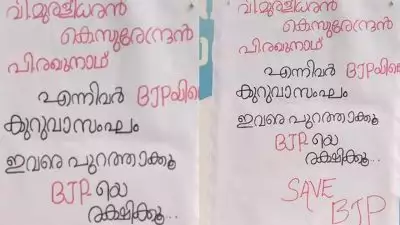 വി.മുരളീധരൻ
കെ.സുരേന്ദ്രൻ
പി.രഘുനാഥ്
എന്നിവർ BJPയിലെ
കുറുവാസംഘം
ഇവരെ പുറത്താക്കൂ
BJP യെ
രക്ഷിക്കൂ...
വി.മുരളീധരൻ
കെ.സുരേന്ദ്രൻ
പി.രഘുനാഥ്
എന്നിവർ BJPയിലെ
കുറുവാസംഘം
ഇവരെ പുറത്താക്കൂ
BJP യെ
രക്ഷിക്കൂ...
SAVE
BJP